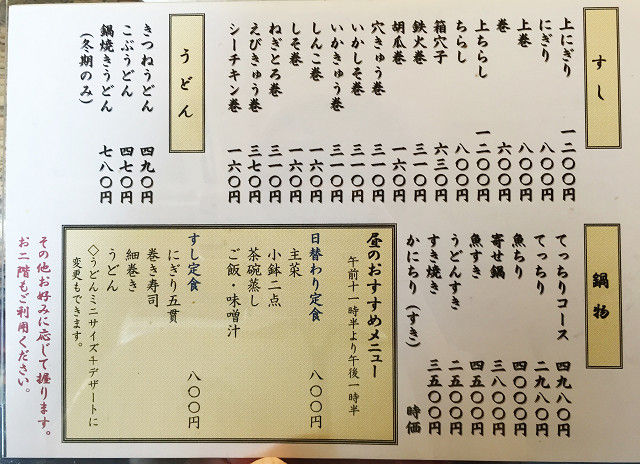 すし
上にぎり 一二〇〇円
にぎり 八〇〇円
上巻 八〇〇円
巻 六〇〇円
上ちらし 一二〇〇円
ちらし 八〇〇円
箱穴子 六三〇円
鉄火巻 三一〇円
胡瓜巻 一六〇円
穴きゅう巻 三一〇円
いかしそ巻 三一〇円
いかきゅう巻 三一〇円
しんこ巻 一六〇円
しそ巻 一六〇円
ねぎとろ巻 三一〇円
えびきゅう巻 三七〇円
シーチキン巻 一六〇円
うどん
きつねうどん 四九〇円
こぶうどん 四七〇円
鍋焼きうどん 七八〇円
(冬期のみ)
鍋物
てっちりコース 四九八〇円
てっちり 二九八〇円
魚ちり 四〇〇〇円
寄せ鍋 三八〇〇円
魚すき 四五〇〇円
うどんすき 二五〇〇円
すき焼き 三五〇〇円
かにちり(すき) 時価
昼のおすすめメニュー
午前十一時半より午後一時半
日替わり定食 八〇〇円
主菜
小鉢二点
茶碗蒸し
ご飯・味噌汁
すし定食 八〇〇円
にぎり五貫
巻き寿司
細巻き
うどん
◇うどんミニサイズ+デザートに
変更もできます。
その他お好みに応じて握ります。
お二階もご利用ください。